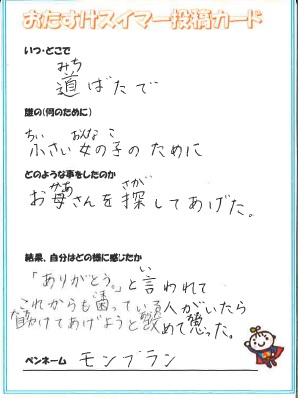 おたすけスイマー投稿カード
いつ・どこで
みち
道ばたで
誰の(何のために)
ちい おんな こ
小さい女の子のために
どのような事をしたのか
かあ さが
お母さんを探してあげた。
結果、自分はどの様に感じたか
い
「ありがとう。」と言われて
これからも困っている人がいたら
助けてあげようと改めて思った。
ペンネーム モンブラン